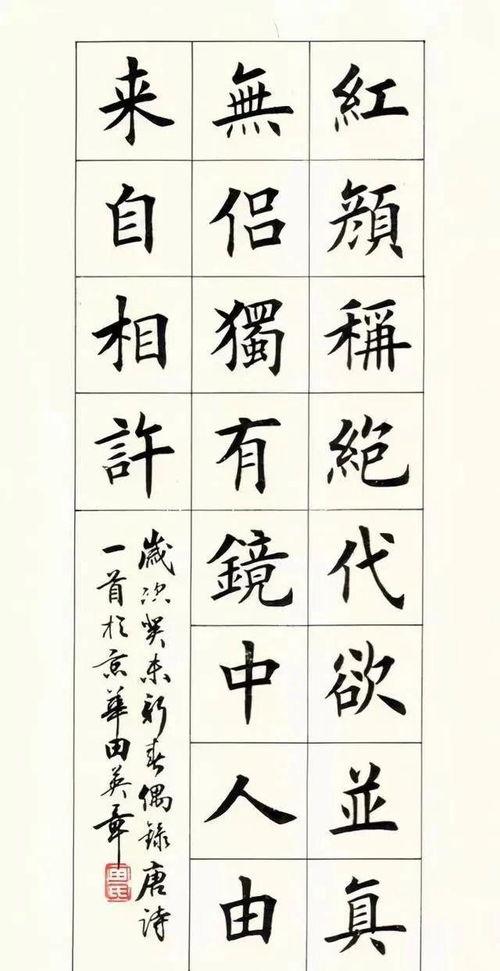 紅顔稱絶代欲並真
無侣獨有鏡中人由
来自相許
歲次癸未新春偶錄唐诗
一首於京華田英章
田氏